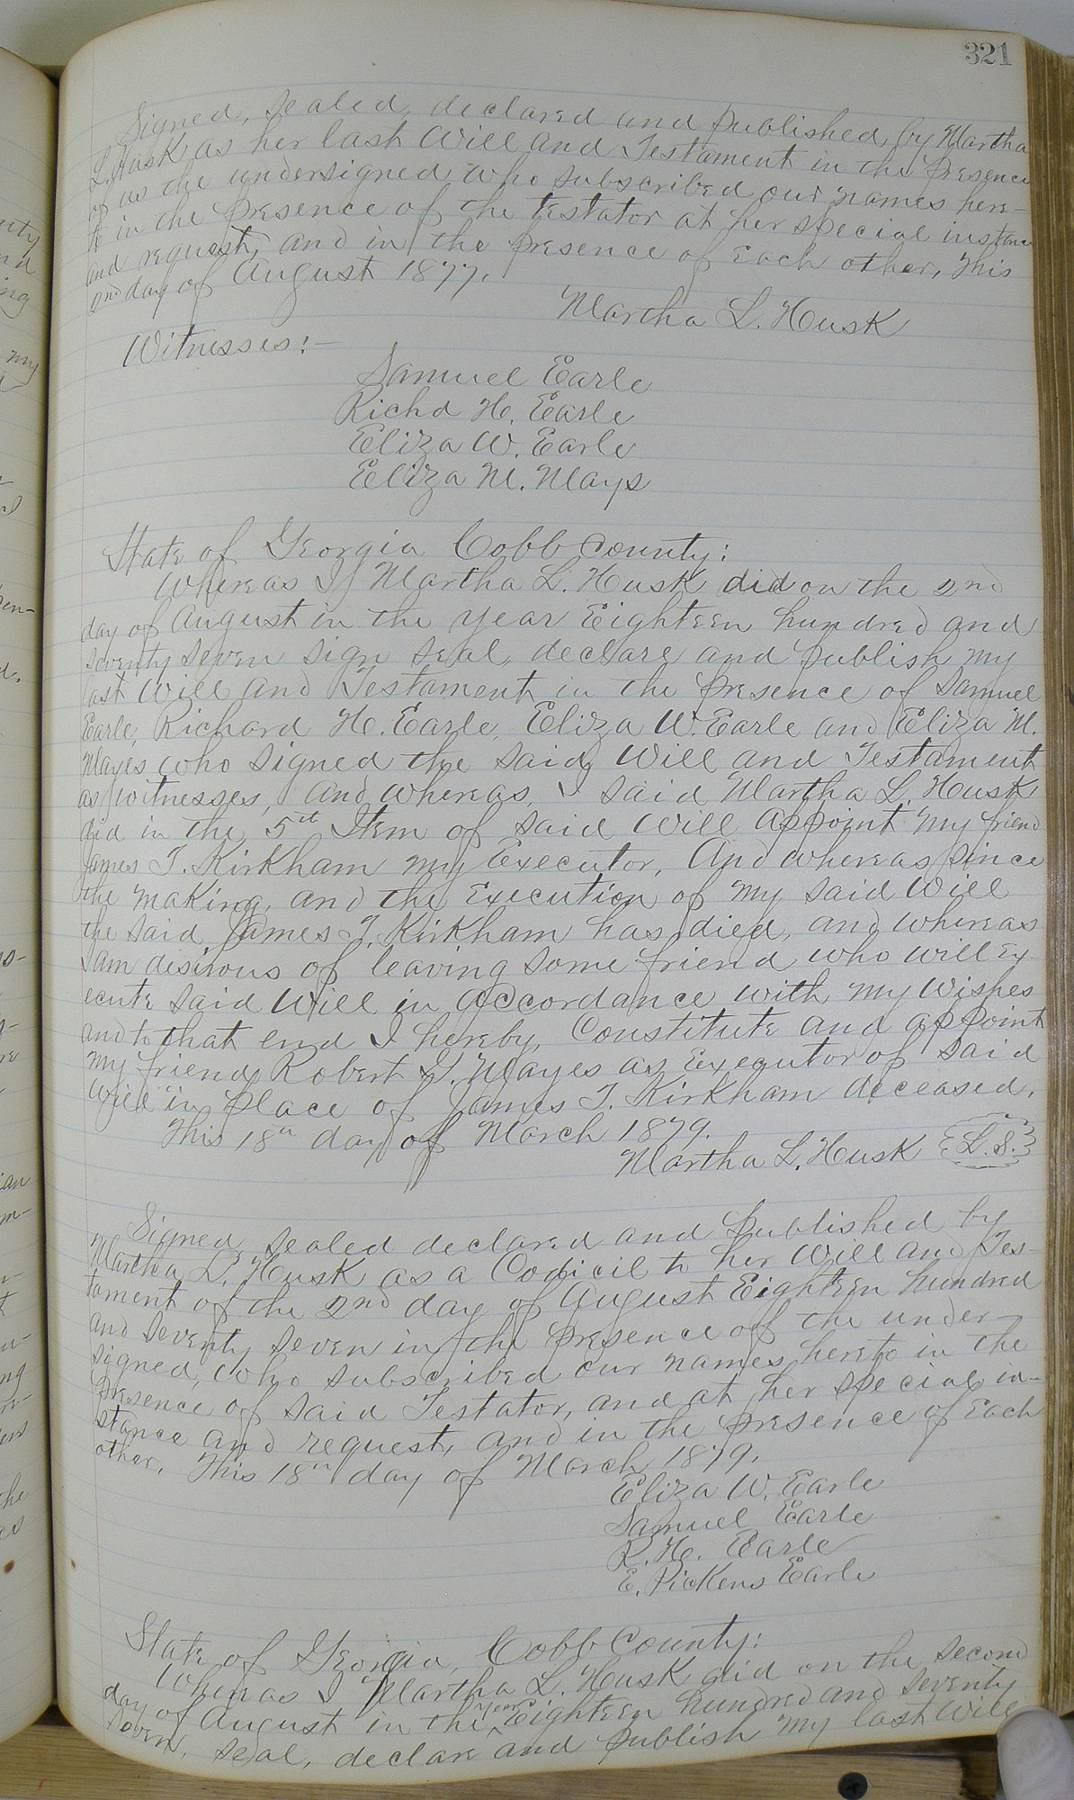 321
Signed, Sealed, declared and published, by Martha
L. Husk as her last Will and Testament in the presence
of us the undersigned who subscribed our names here-
to in the presence of the testator at her special instance
and request, and in the presence of Each other, This
2nd day of August 1877.
Martha L. Husk
Witnesses:-
Samuel Earle
Richd H. Earle
Eliza W. Earle
Eliza M. Mays
State of Georgia Cobb County:
Whereas I Martha L. Husk did on the 2nd
day of August in the year Eighteen hundred and
seventy seven sign seal, declare and publish my
last Will and Testament in the presence of Samuel
Earle, Richard H. Earle, Eliza W. Earle and Eliza M.
Mayes who signed the said Will and Testament
as witnesses, and whereas, I said Martha L. Husk
did in the 5th Item of said Will appoint my friend
James T. Kirkham my Executor, And whereas since
the making, and the Execution of my said Will
the said James T. Kirkham has died, and whereas
I am desirous of leaving some friend who will ex
ecute said Will in accordance with my Wishes
and to that end I hereby, Constitute and appoint
my friend Robert G. Mayes as Executor of said
Will in place of James T. Kirkham deceased.
This 18th day of March 1879.
Martha L. Husk {L.S.}
Signed, sealed declared and published by
Martha L. Husk as a Codicil to her Will and Tes-
tament of the 2nd day of August Eighteen hundred
and seventy seven in the presence of the under-
signed, who subscribed our names hereto in the
presence of said Testator, and at her special in-
stance and request, and in the presence of Each
other, This 18th day of March 1879.
Eliza W. Earle
Samuel Earle
R. H. Earle
E. Pickens Earle
State of Georgia, Cobb County:
Whereas I Martha L. Husk did on the second
day of August in the year Eighteen hundred and seventy
Seven, seal, declare and publish my last Will